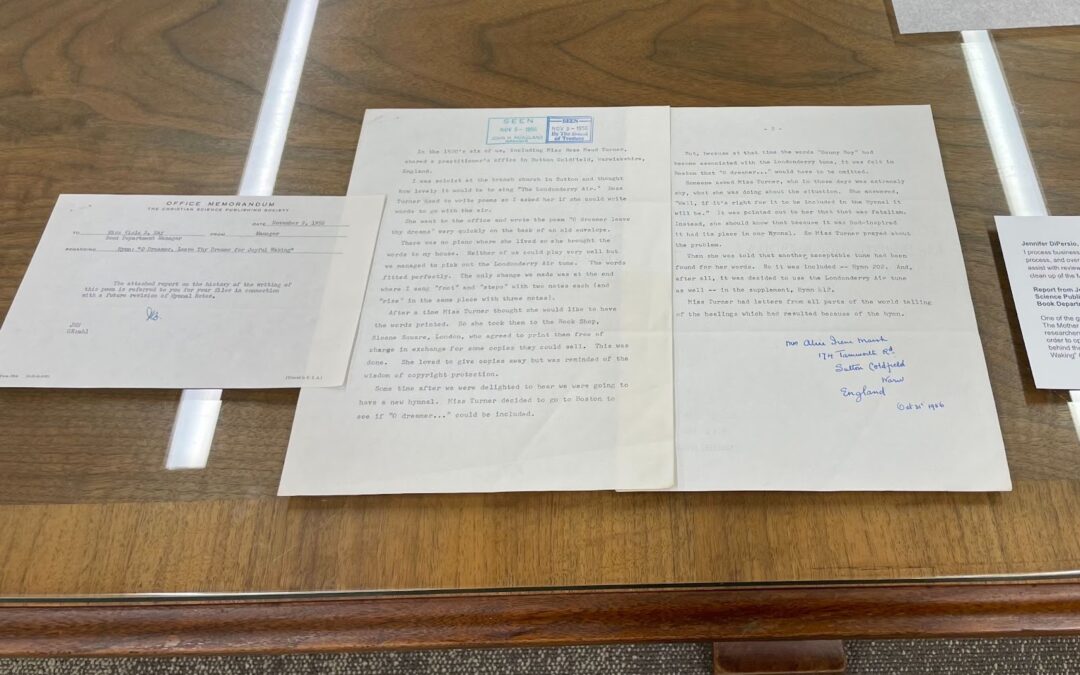 OFFICE MEMORANDUM
THE CHRISTIAN SCIENCE PUBLISHING SOCIETY
DATE November 9, 1956
TO Miss
Book Department Manager
FROM Manager
REGARDING Hymn: "O Dreamer, Leave Thy Dreams for Joyful Waking"
The attached report on the history of the writing of
this poem is referred to you for your files in connection
with a future revision of Hymnal Notes.
SEEN
NOV 9 - 1956
JOHN H. HOAGLAND
MANAGER
SEEN
NOV 9 - 1956
By The Board
of Trustees
In the 1920's six of us, including Miss Rosa Maud Turner,
shared a practitioner's office in Sutton Coldfield, Warwickshire,
England.
I was soloist at the branch church in Sutton and thought
how lovely it would be to sing "The Londonderry Air." Rosa
Turner used to write poems so I asked her if she could write
words to go with the air.
She went to the office and wrote the poem "O dreamer leave
thy dreams" very quickly on the back of an old envelope.
There was no piano where she lived so she brought the
words to my house. Neither of us could play very well but
we managed to pick out the Londonderry Air tune. The words
fitted perfectly. The only change we made was at the end
where I sang "foot" and "steps" with two notes each (and
"rise" in the same place with three notes).
After a time Miss Turner thought she would like to have
the words printed. So she took them to the Book Shop,
Sloane Square, London, who agreed to print them free of
charge in exchange for some copies they could sell. This was
done. She loved to give copies away but was reminded of the
wisdom of copyright protection.
Some time after we were delighted to hear we were going to
have a new hymnal. Miss Turner decided to go to Boston to
see if "O dreamer..." could be included.
- 2 -
But, because at that time the words "Danny Boy" had
become associated with the Londonderry tune, it was felt in
Boston that "O dreamer..." would have to be omitted.
Someone asked Miss Turner, who in those days was extremely
shy, what she was doing about the situation. She answered,
"Well, if it's right for it to be included in the Hymnal it
will be." It was pointed out to her that that was fatalism.
Instead, she should know that because it was God-inspired
it had its place in our Hymnal. So Miss Turner prayed about
the problem.
Then she was told that another acceptable tune had been
found for her words. So it was included -- Hymn 202. And,
after all, it was decided to use the Londonderry Air tune
as well -- in the supplement, Hymn 412.
Miss Turner had letters from all parts of the world telling
of the healings which had resulted because of the hymn.
Mrs Alice Irene Marsh
174 Tamworth Rd
Sutton Coldfield
Warw
England
Oct 31 1956
Jennifer DiPersio,
I process business
process, and over
assist with review
clean up of the
Report from Je
Science Publis
Book Departm
One of the g
The Mother
researchers
order to op
behind the
Waking"